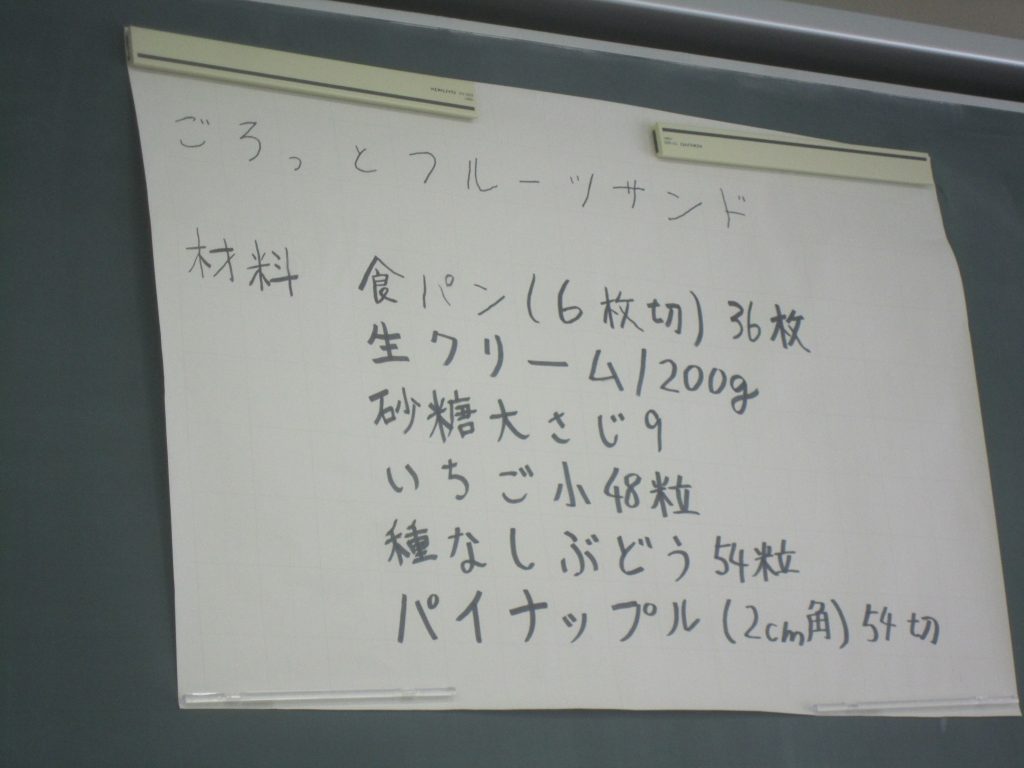 ごろっとフルーツサンド
材料 食パン(6枚切)36枚
生クリーム1200g
砂糖大さじ9
いちご小48粒
種なしぶどう54粒
パイナップル(2cm角)54切